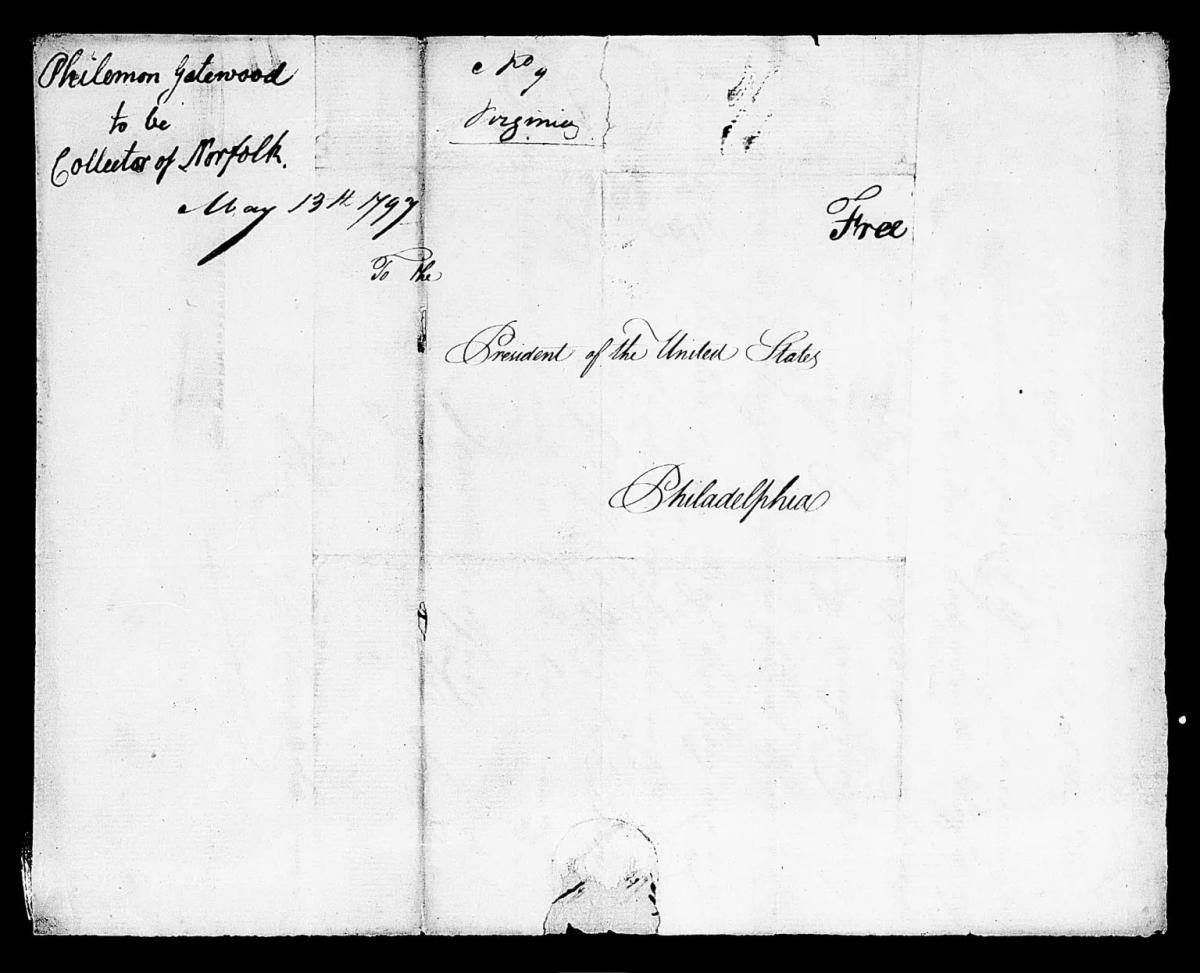 Philemon Gatewood
to be
Collector of Norfolk.
May 13th 1797
No 9
Virginia
Free
To the
President of the United States
Philadelphia